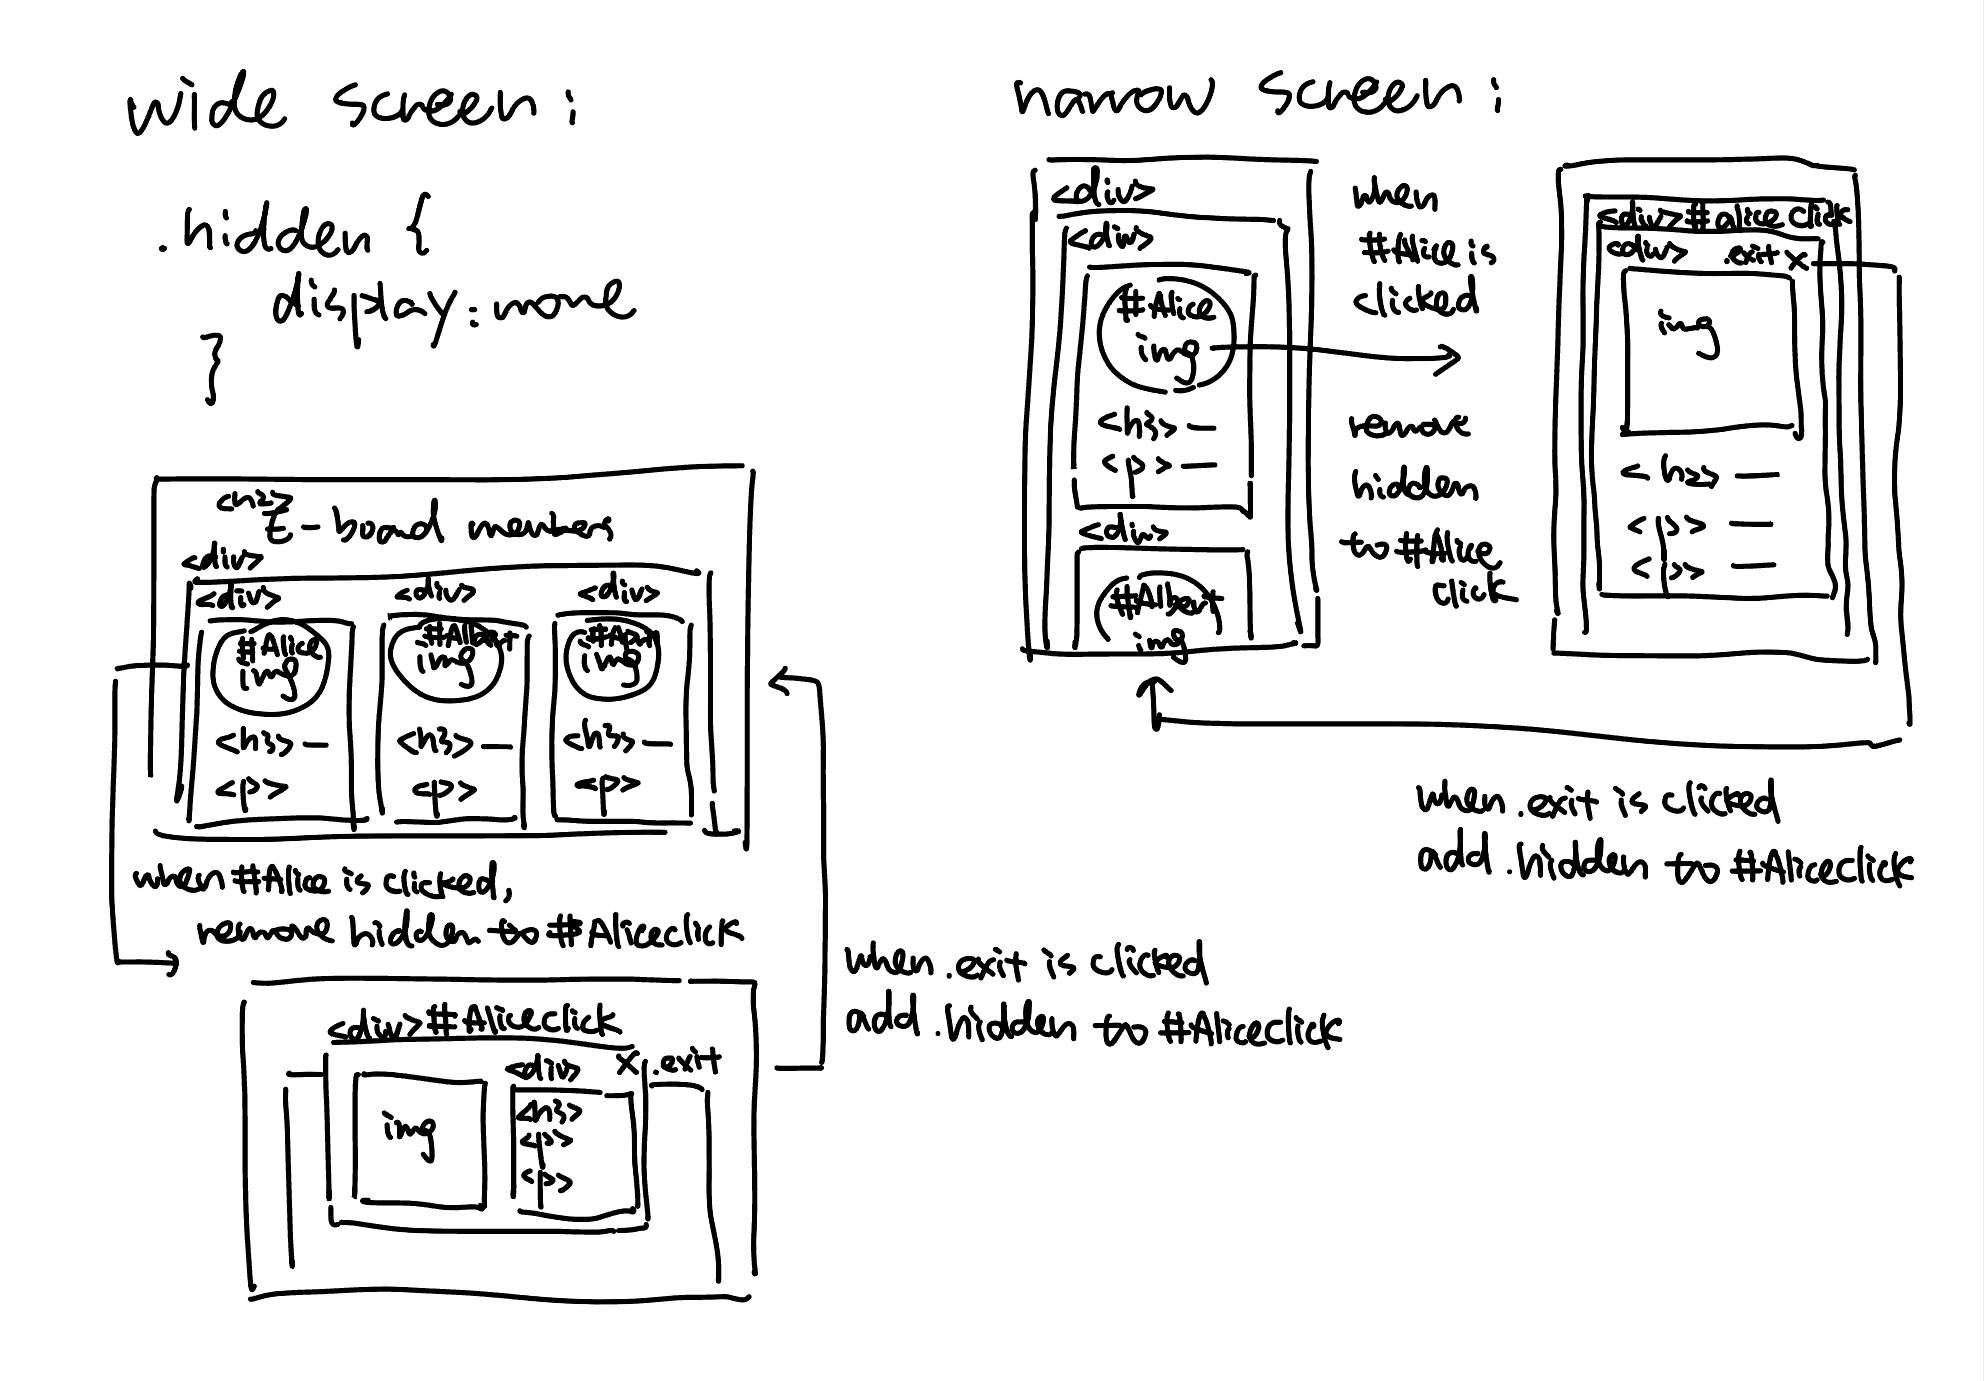 wide screen:
.hidden {
display: none
}
<h2>
E-board members
<div>
<div> <div> <div>
#Alice #Albert
img img img
<h3> — <h3> — <h3> —
<p> <p> <p>
when #Alice is clicked,
remove hidden to #Aliceclick
<div> #Aliceclick
<div> X .exit
img
<h3>
<p>
<p>
when .exit is clicked
add .hidden to #Aliceclick
narrow screen:
<div>
<div>
#Alice
img
<h3> —
<p> —
<div>
#Albert
img
when
#Alice is
clicked
remove
hidden
to #Alice
click
<div> #aliceclick
<div> .exit X
img
<h2> —
<p> —
<p> —
when .exit is clicked
add .hidden to #Aliceclick